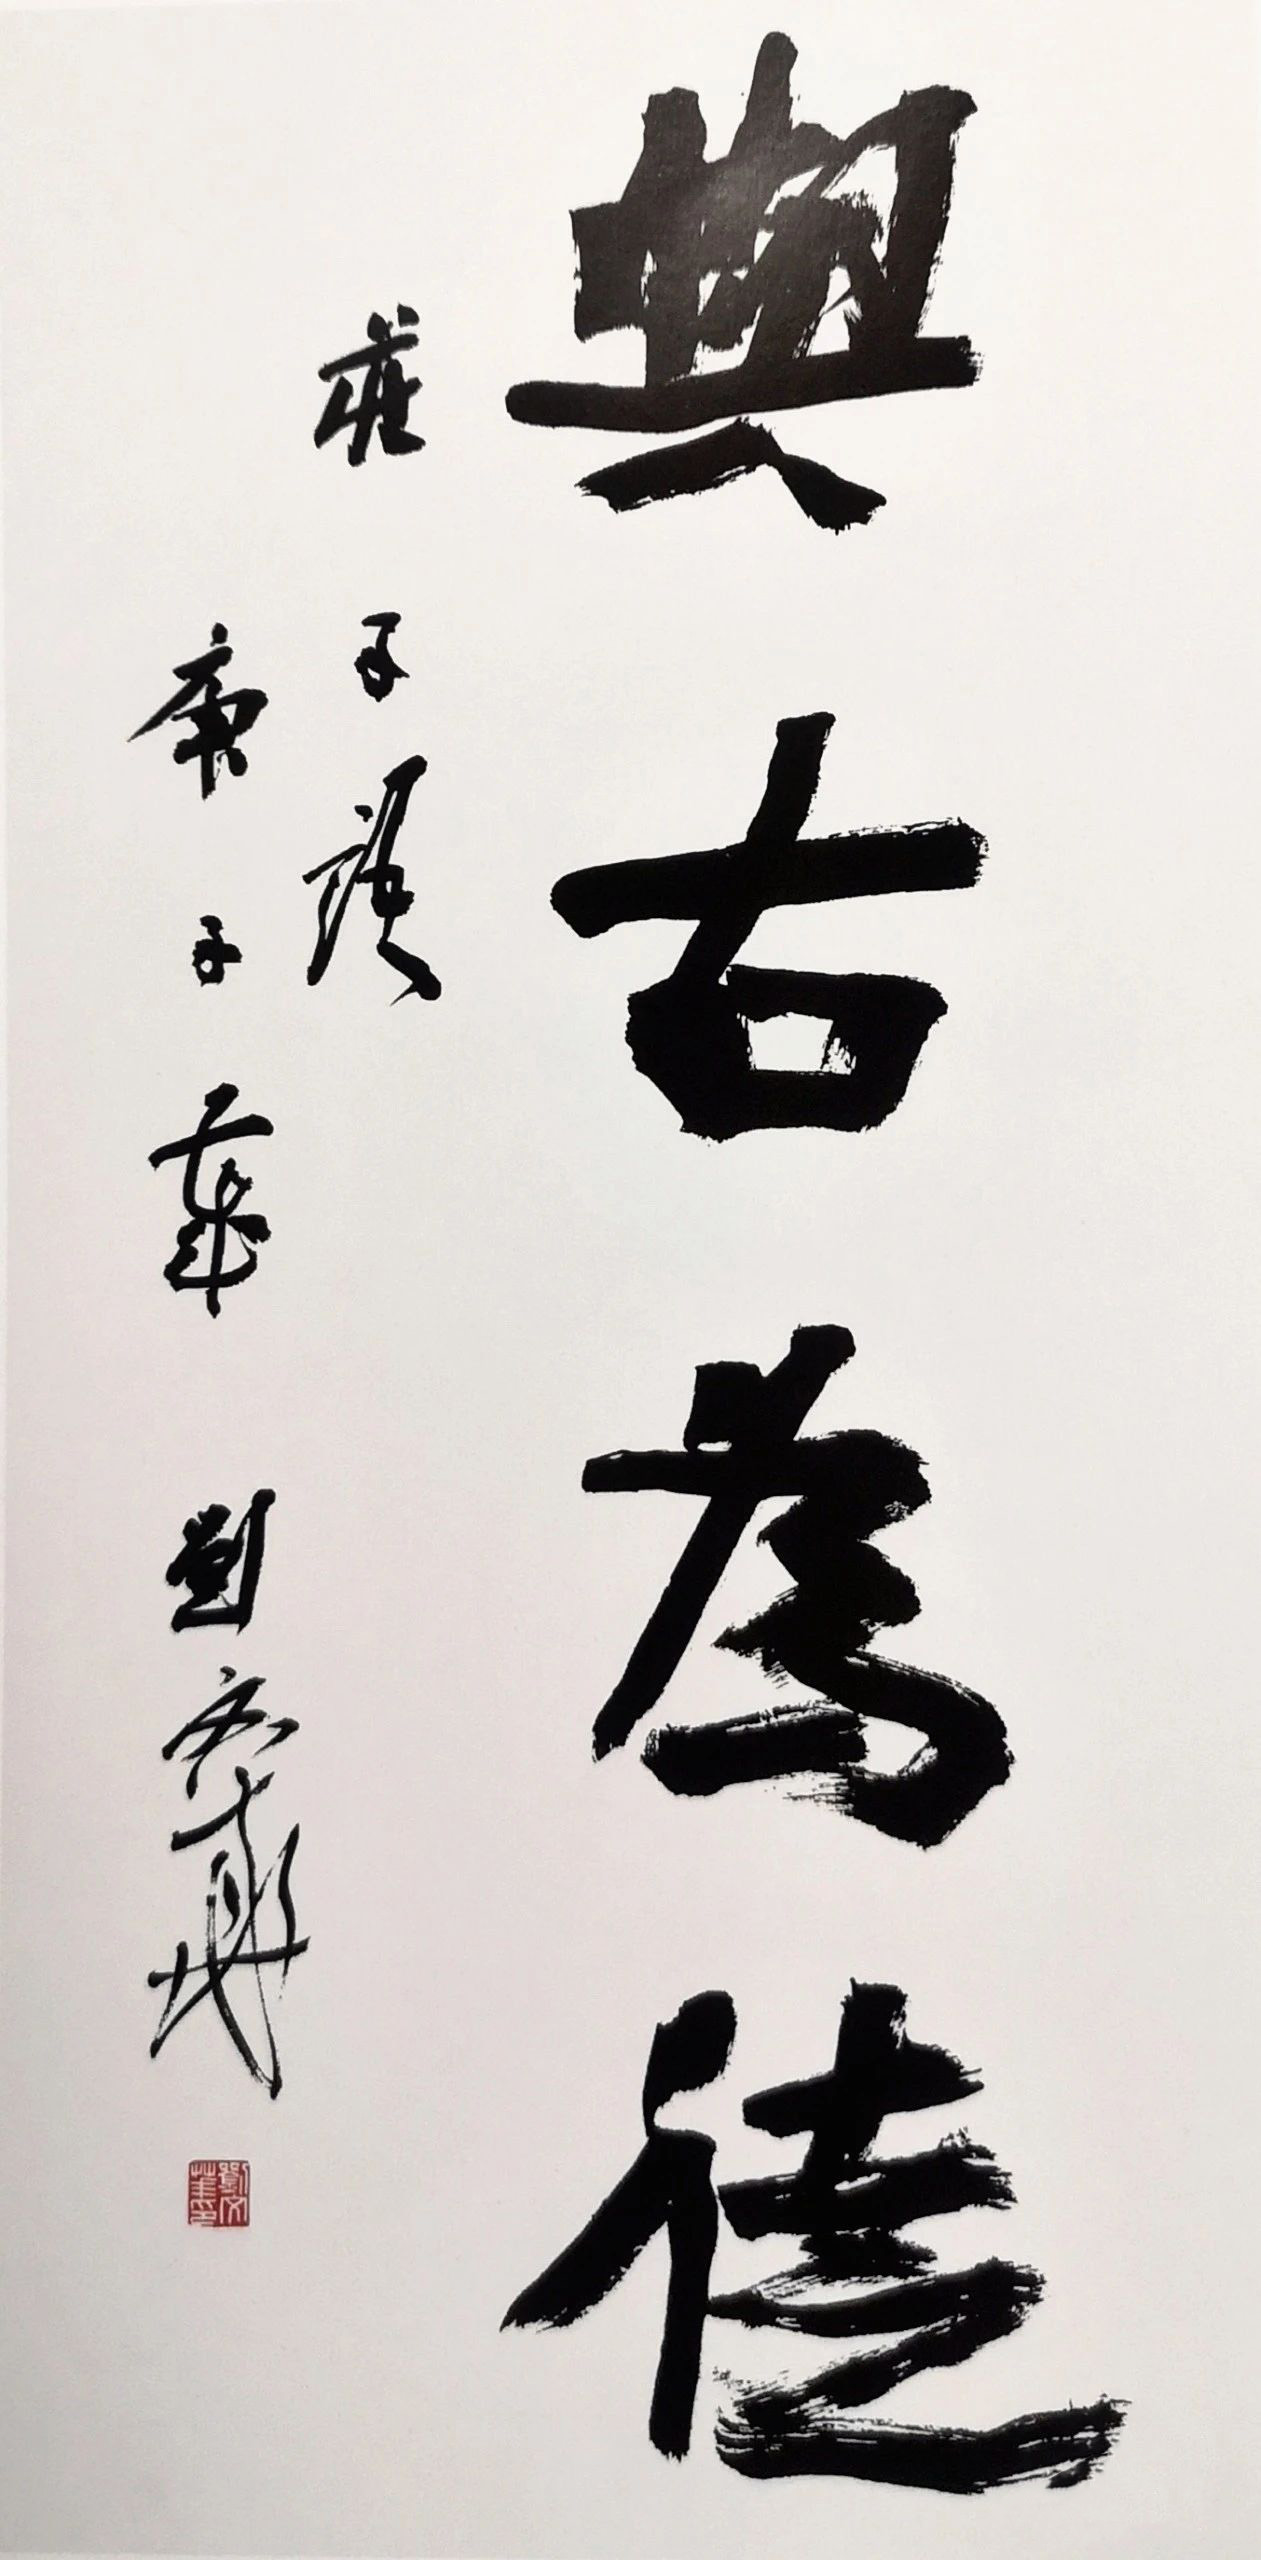 與古為徒
莊子語
庚子 劉文華
劉文華印